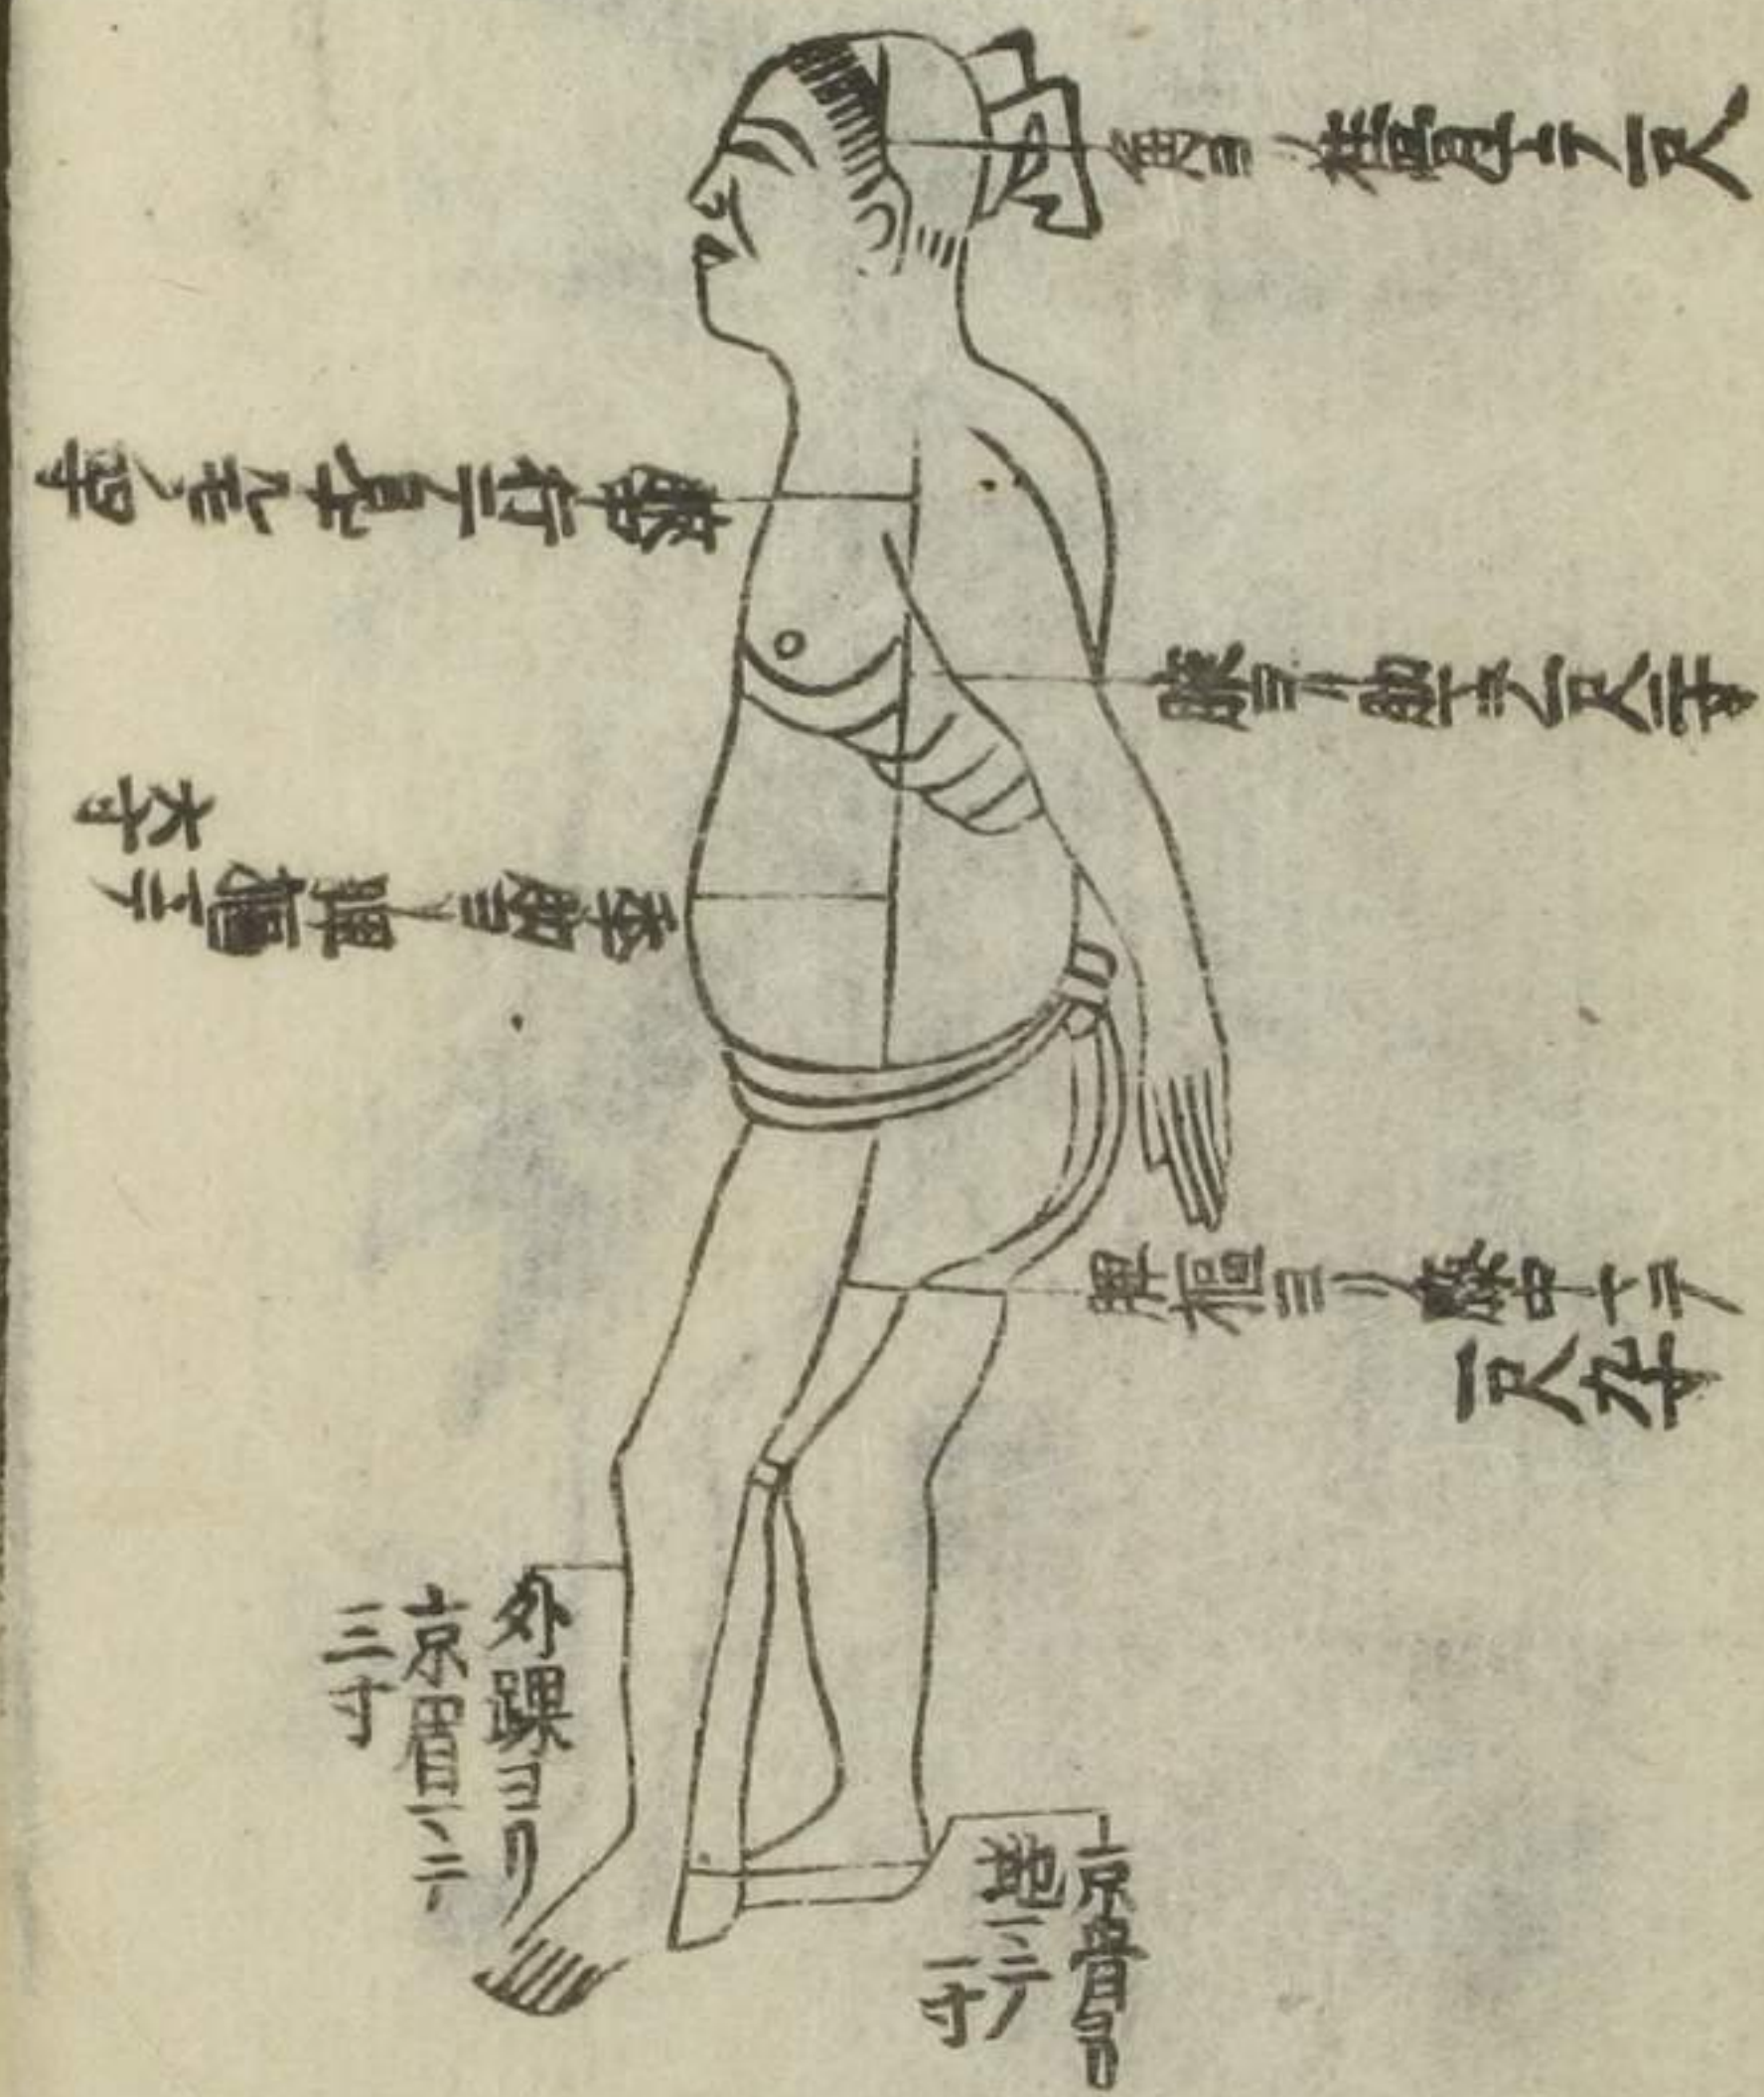 角ヨリ柱骨マテ一尺
腋ヨリ季脇マテ一尺二寸
季脇ヨリ髀樞マテ
六寸
髀樞ヨリ膝中マテ
一尺九寸
外踝ヨリ
京骨マテ
三寸
京骨ヨリ
地マテ
一寸